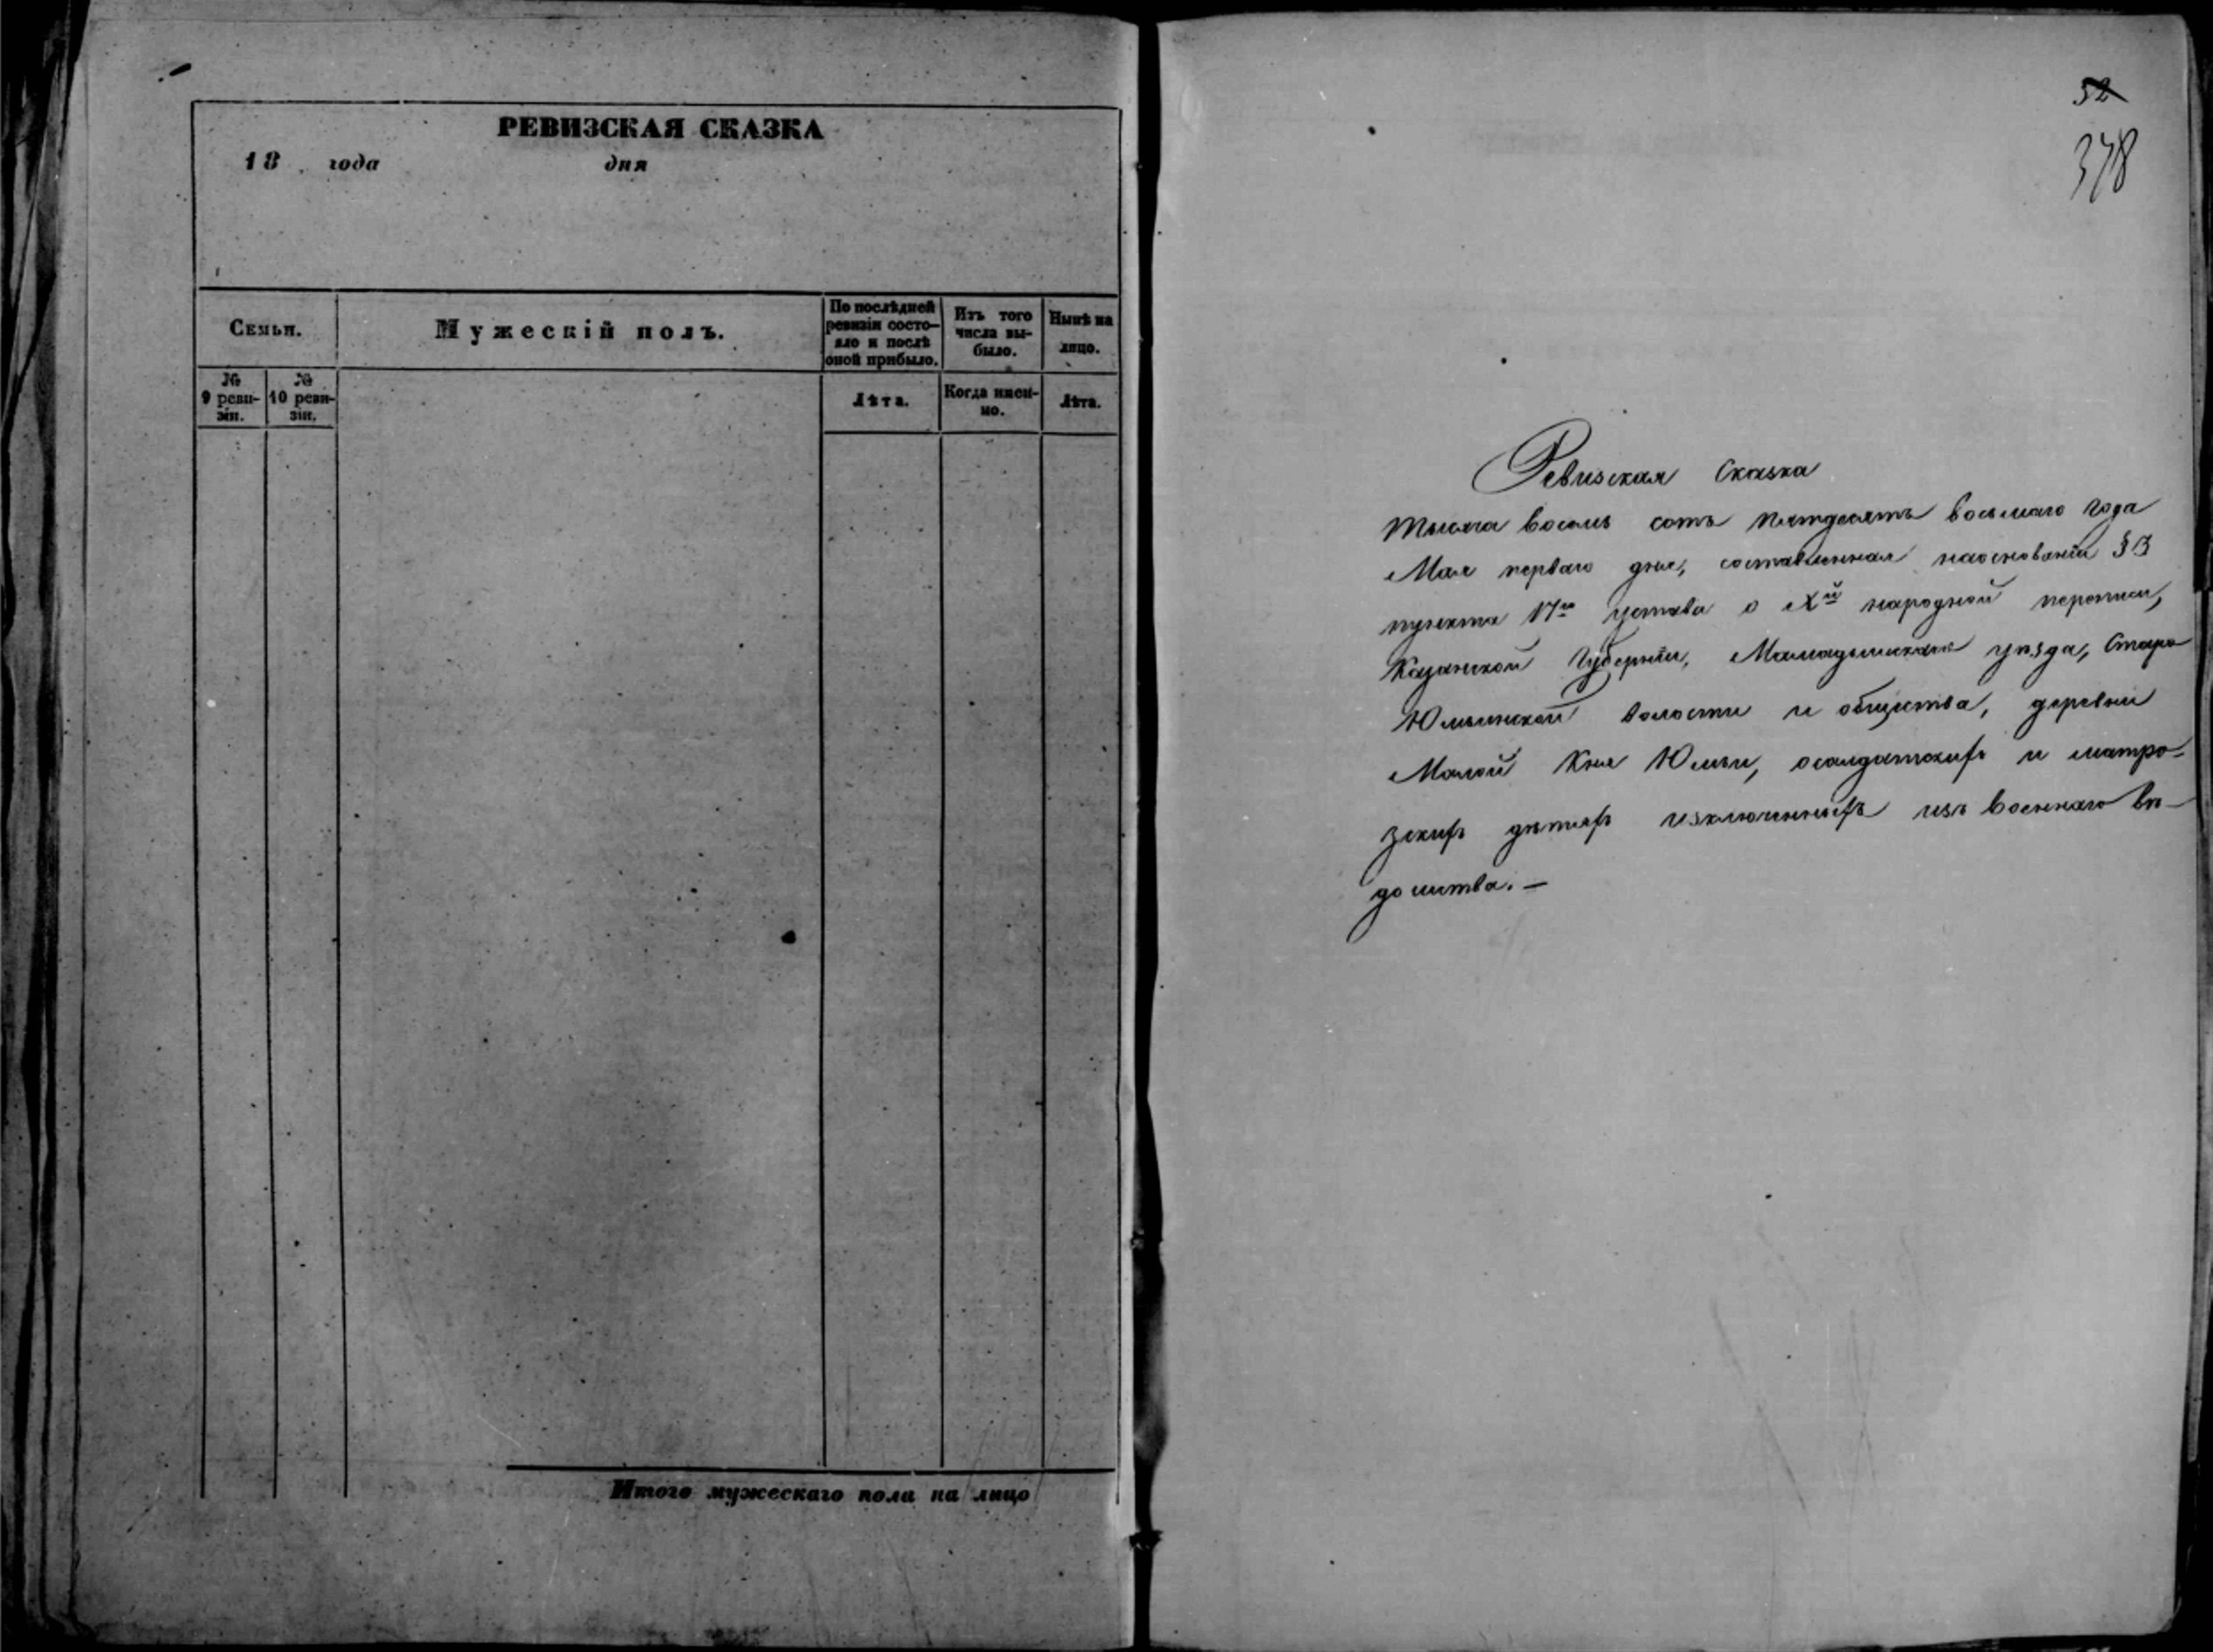 РЕВИЗСКАЯ СКАЗКА
18 года дня
Семьи.
Мужескій полъ.
По послѣдней
ревизіи состо-
яло и послѣ
оной прибыло.
Изъ того
числа вы-
было.
Нынѣ на
лицо.
№
9 реви-
зіи.
№
10 реви-
зіи.
Лѣта.
Когда имен-
но.
Лѣта.
Итого мужескаго пола на лицо
52
378
Ревизская Сказка
Тысяча восемь сотъ пятдесятъ восьмаго года
Мая перваго дня, составленная наоснованіи §
пункта 17го устава о Хй народной переписи,
Казанской Губерніи, Мамадышскаго уѣзда, Старо
Юмьинской волости и общества, деревни
Малой Кня Юмьи, осолдатскихъ и матро-
зскихъ дѣтяхъ изключенныхъ изъ военнаго вѣ-
домства. —